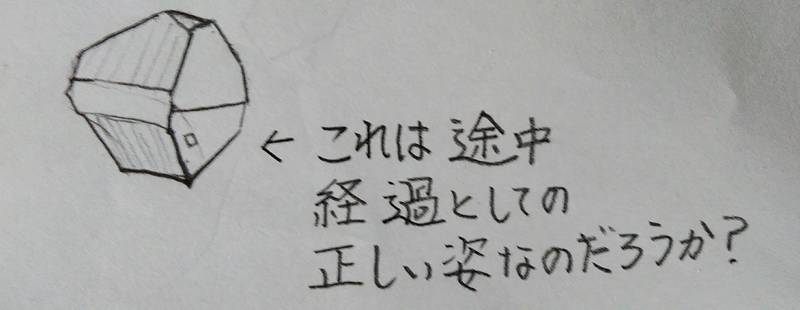 ← これは途中
経過としての
正しい姿なのだろうか?